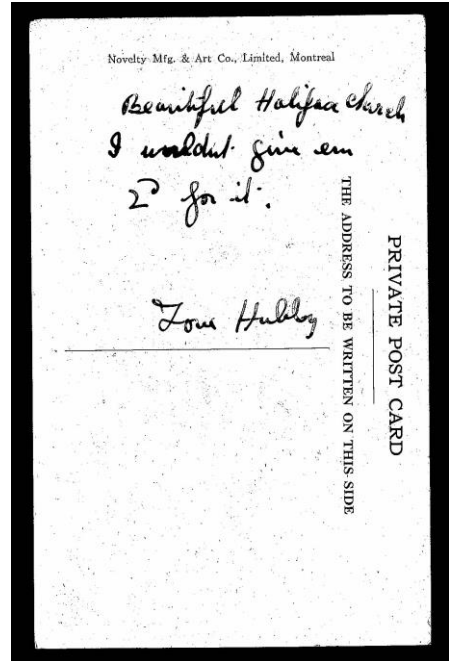 Novelty Mfg. & Art Co., Limited, Montreal
Beautiful Halifax Church
I wouldnt give em
2ᴰ for it.
Your Hubby
PRIVATE POST CARD
THE ADDRESS TO BE WRITTEN ON THIS SIDE